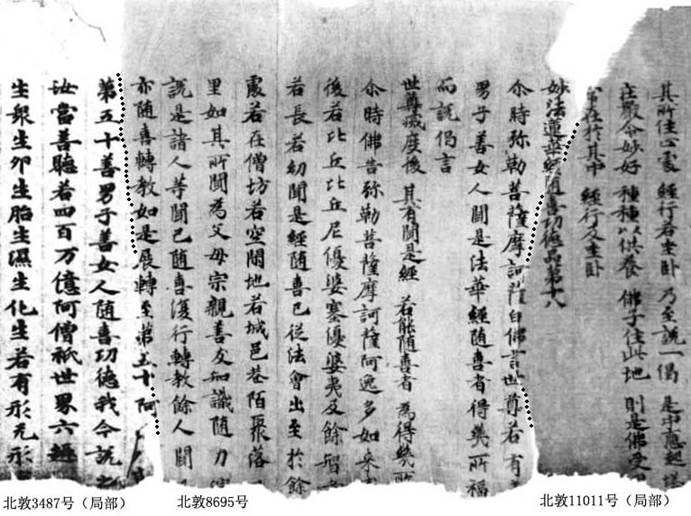 其所住止處 經行若坐卧 乃至說一偈 是中應起塔
莊嚴令妙好 種種以供養 佛子住此地 則是佛受
常在於其中 經行及坐卧
妙法蓮華經随喜功德品第十八
尒時弥勒菩薩摩訶薩白佛言世尊若有
男子善女人聞是法華經随喜者得幾所福
而說偈言
世尊滅度後 其有聞是經 若能随喜者 為得幾所
尒時佛告弥勒菩薩摩訶薩阿逸多如来
後若比丘比丘尼優婆塞優婆夷及餘智
若長若幼聞是經随喜已從法會出至於餘
處若在僧坊若空閑地若城邑巷陌聚落
里如其所聞為父母宗親善友知識随力演
說是諸人等聞已随喜復行轉教餘人聞
亦随喜轉教如是展轉至第五十阿
第五十善男子善女人随喜功德我今說之
汝當善聽若四百万億阿僧祇世界六趣
生眾生卵生胎生濕生化生若有形无形
北敦3487号（局部）
北敦8695号
北敦11011号（局部）